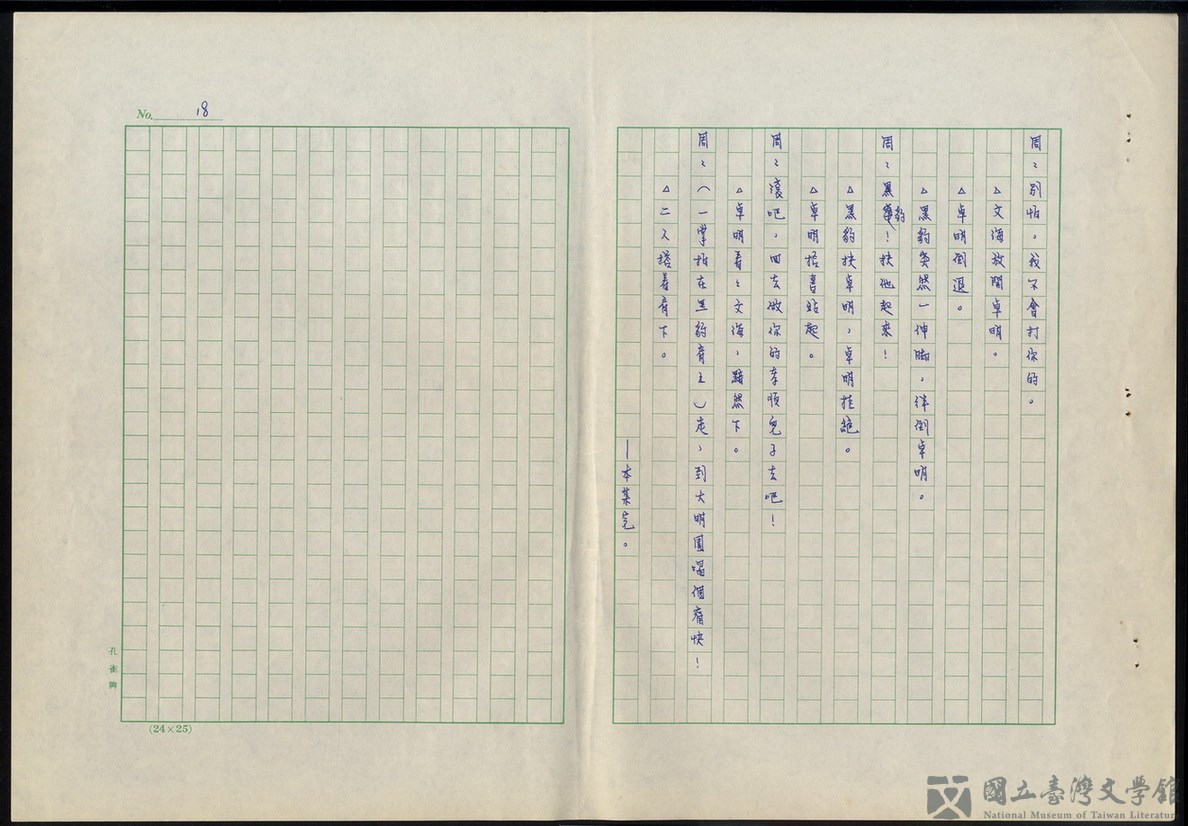 周：別怕，我不會打你的。
△文海放開卓明。
△卓明倒退。
△黑豹突然一伸脚，絆倒卓明。
周：黑豹！扶他起來！
△黑豹扶卓明，卓明拒絕。
△卓明拾書站起。
周：滾吧，回去做你的孝順兒子去吧！
△卓明看看文海，黯然下。
周：（一掌拍在黑豹肩上）走，到大明園喝個痛快！
△二人搭著肩下。
—本集完。
No. 18
孔雀牌
(24×25)
國立臺灣文學館
National Museum of Taiwan Literature